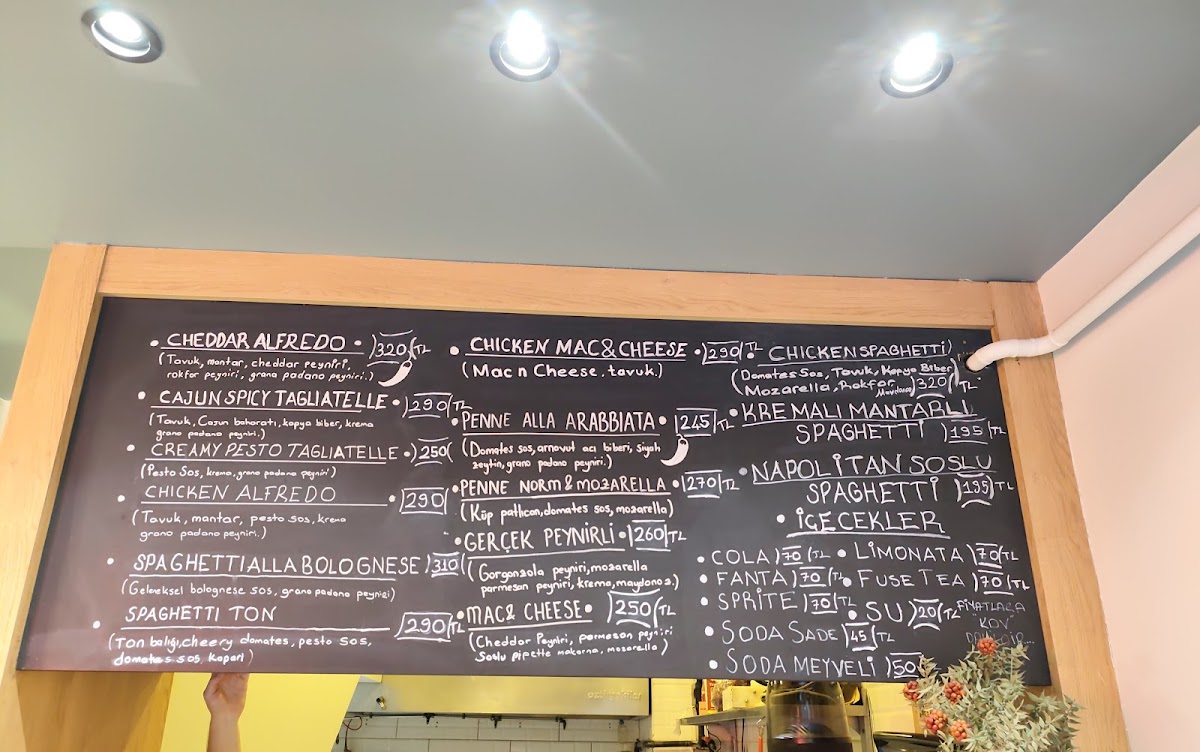 • CHEDDAR ALFREDO • 320 TL
(Tavuk, mantar, cheddar peyniri,
rokfor peyniri, grana padano peyniri.)
• CAJUN SPICY TAGLIATELLE • 290 TL
(Tavuk, Cajun baharatı, kapya biber, krema
grano padano peyniri.)
• CREAMY PESTO TAGLIATELLE • 250
(Pesto Sos, krema, grana padano peyniri)
• CHICKEN ALFREDO • 290
(Tavuk, mantar, pesto sos, krema
grana padano peyniri.)
• SPAGHETTI ALLA BOLOGNESE 310
(Geleneksel bolognese sos, grana padano peyniri)
• SPAGHETTI TON 290 TL
(Ton balığı, cheery domates, pesto sos,
domates sos, kapari)
• CHICKEN MAC & CHEESE • 290 TL
(Mac n Cheese, tavuk.)
• PENNE ALLA ARABBIATA • 245 TL
(Domates sos, arnavut acı biberi, siyah
zeytin, grano padano peyniri.)
• PENNE NORM & MOZARELLA • 270 TL
(Küp patlıcan, domates sos, mozarella)
• GERÇEK PEYNİRLİ • 260 TL
(Gorgonzola peyniri, mozarella
parmesan peyniri, krema, maydonoz.)
• MAC & CHEESE • 250 TL
(Cheddar Peyniri, parmesan peyniri
Soslu pipette makarna, mozarella)
• CHICKEN SPAGHETTI
(Domates Sos, Tavuk, Kapya Biber
Mozarella, Rokfor 320 TL
• KREMALI MANTARLI
SPAGHETTİ 195 TL
• NAPOLİTAN SOSLU
SPAGHETTİ 195 TL
• İÇECEKLER
• COLA 70 TL • LİMONATA 70 TL
• FANTA 70 TL • FUSE TEA 70 TL
• SPRİTE 70 TL • SU 20 TL
• SODA SADE 45 TL
• SODA MEYVELİ 50
FİYATLARA
"KDV"
DAHİLDİR...